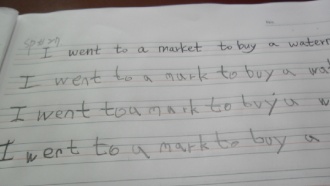 I went to a market to buy a waterm
I went to a mark to buy a wat
I went to a mark to buy a w
I went to a mark to buy a